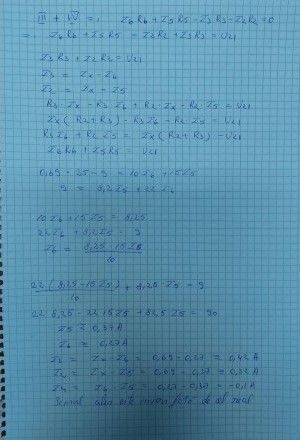 III + IV => I6R6 + I5R5 - I3R3 - I2R2 = 0
= I6R6 + I5R5 = I2R2 + I3R3 = U21
I3R3 + I2R2 = U21
I3 = Ix - I6
I2 = Ix - I5
R3·Ix - R3·I6 + R2·Ix - R2·I5 = U21
Ix(R2+R3) - R3I6 - R2·I5 = U21
R3I6 + R2I5 = Ix(R2+R3) - U21
I6R6 + I5R5 = U21
0,69·25 - 9 = 10I6 + 15I5
9 = 8,2I5 + 22I6
10I6 + 15I5 = 8,25
22I6 + 8,2I5 = 9
I6 = 8,25 - 15I5 / 10
22(8,25 - 15I5) / 10 + 8,25·I5 = 9
22·8,25 - 22·15I5 + 82,5I5 = 90
I5 = 0,37A
I6 = 0,27A
I3 = Ix - I6 = 0,69 - 0,27 = 0,42A
I2 = Ix - I5 = 0,69 - 0,37 = 0,32A
I4 = I6 - I5 = 0,27 - 0,37 = -0,1A
Semnul ales este invers față de cel real